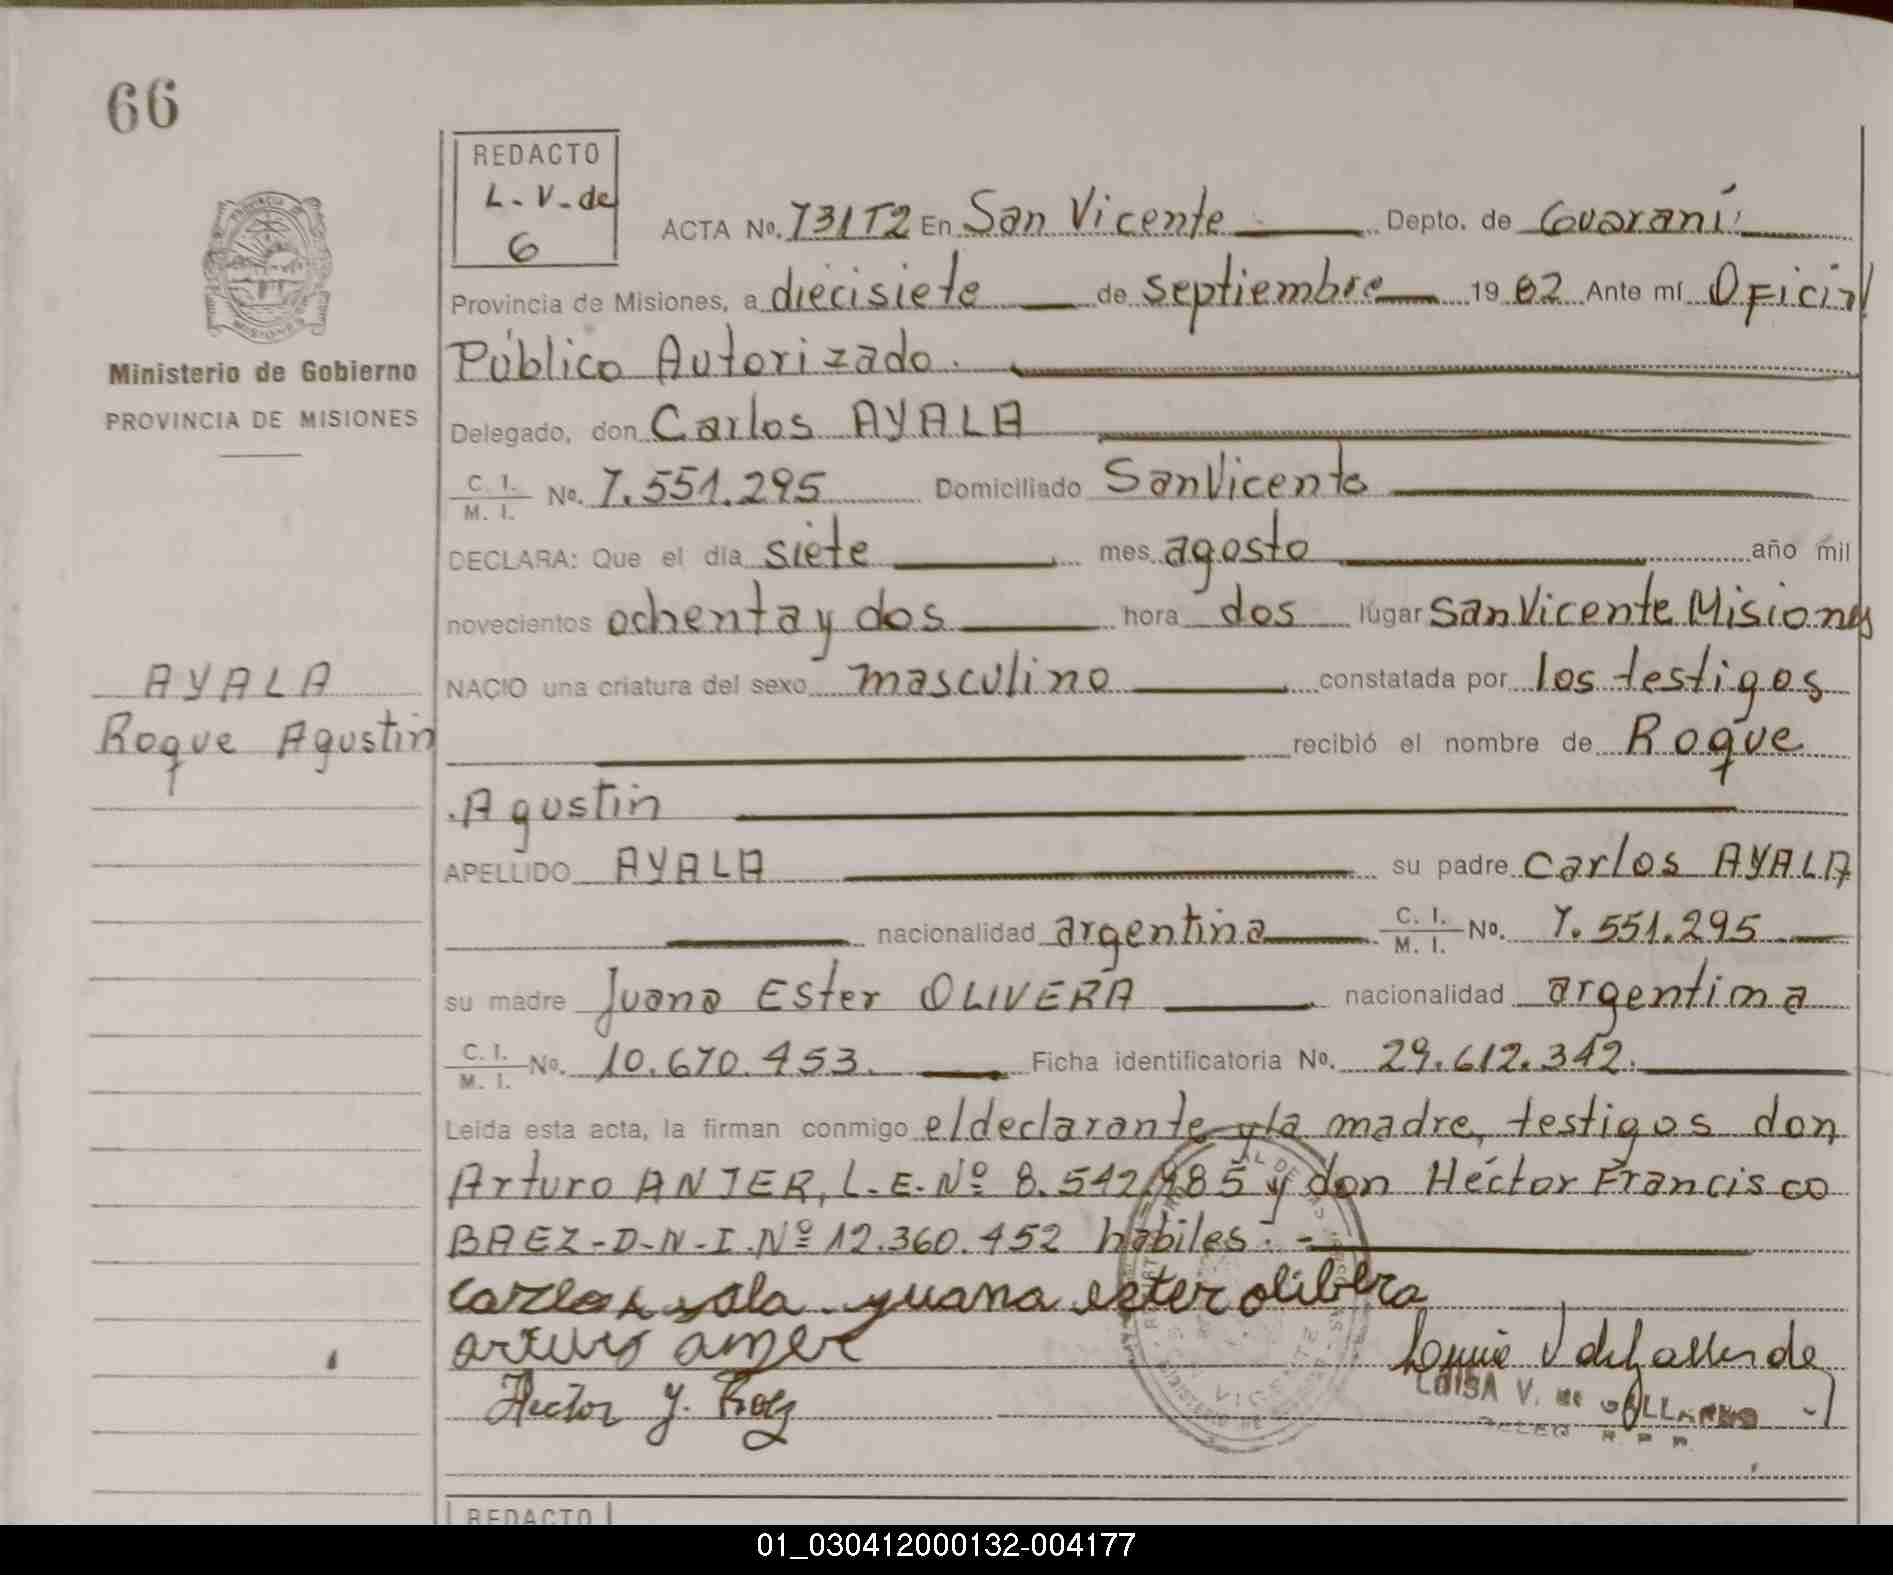 66
REDACTO
L-V-de
G
ACTA No. 731T2 En San Vicente Depto. de Guaraní
Provincia de Misiones, a diecisiete de septiembre 1982 Ante mí Oficial
Público Autorizado.
Ministerio de Gobierno
PROVINCIA DE MISIONES
Delegado, don Carlos AYALA
C. I.
M. I. No. 7.551.295 Domiciliado San Vicente
DECLARA: Que el día siete mes agosto año mil
novecientos ochenta y dos hora dos lugar San Vicente Misiones
AYALA
Roque Agustin
NACIO una criatura del sexo masculino constatada por los testigos
recibió el nombre de Roque
Agustin
APELLIDO AYALA su padre Carlos AYALA
nacionalidad argentina C. I. M. I. No. 7.551.295
su madre Juana Ester OLIVERA nacionalidad argentina
C. I.
M. I. No. 10.670.453. Ficha identificatoria No. 29.612.342.
Leída esta acta, la firman conmigo el declarante y la madre, testigos don
Arturo ANJER, L.E.Nº 8.542.985 y don Héctor Francisco
BAEZ-D-N-I.Nº 12.360.452 hábiles.-
juana ester olibera
arturo anjer
Hector
LUISA V. de GALLARDO
REDACTO
01_030412000132-004177